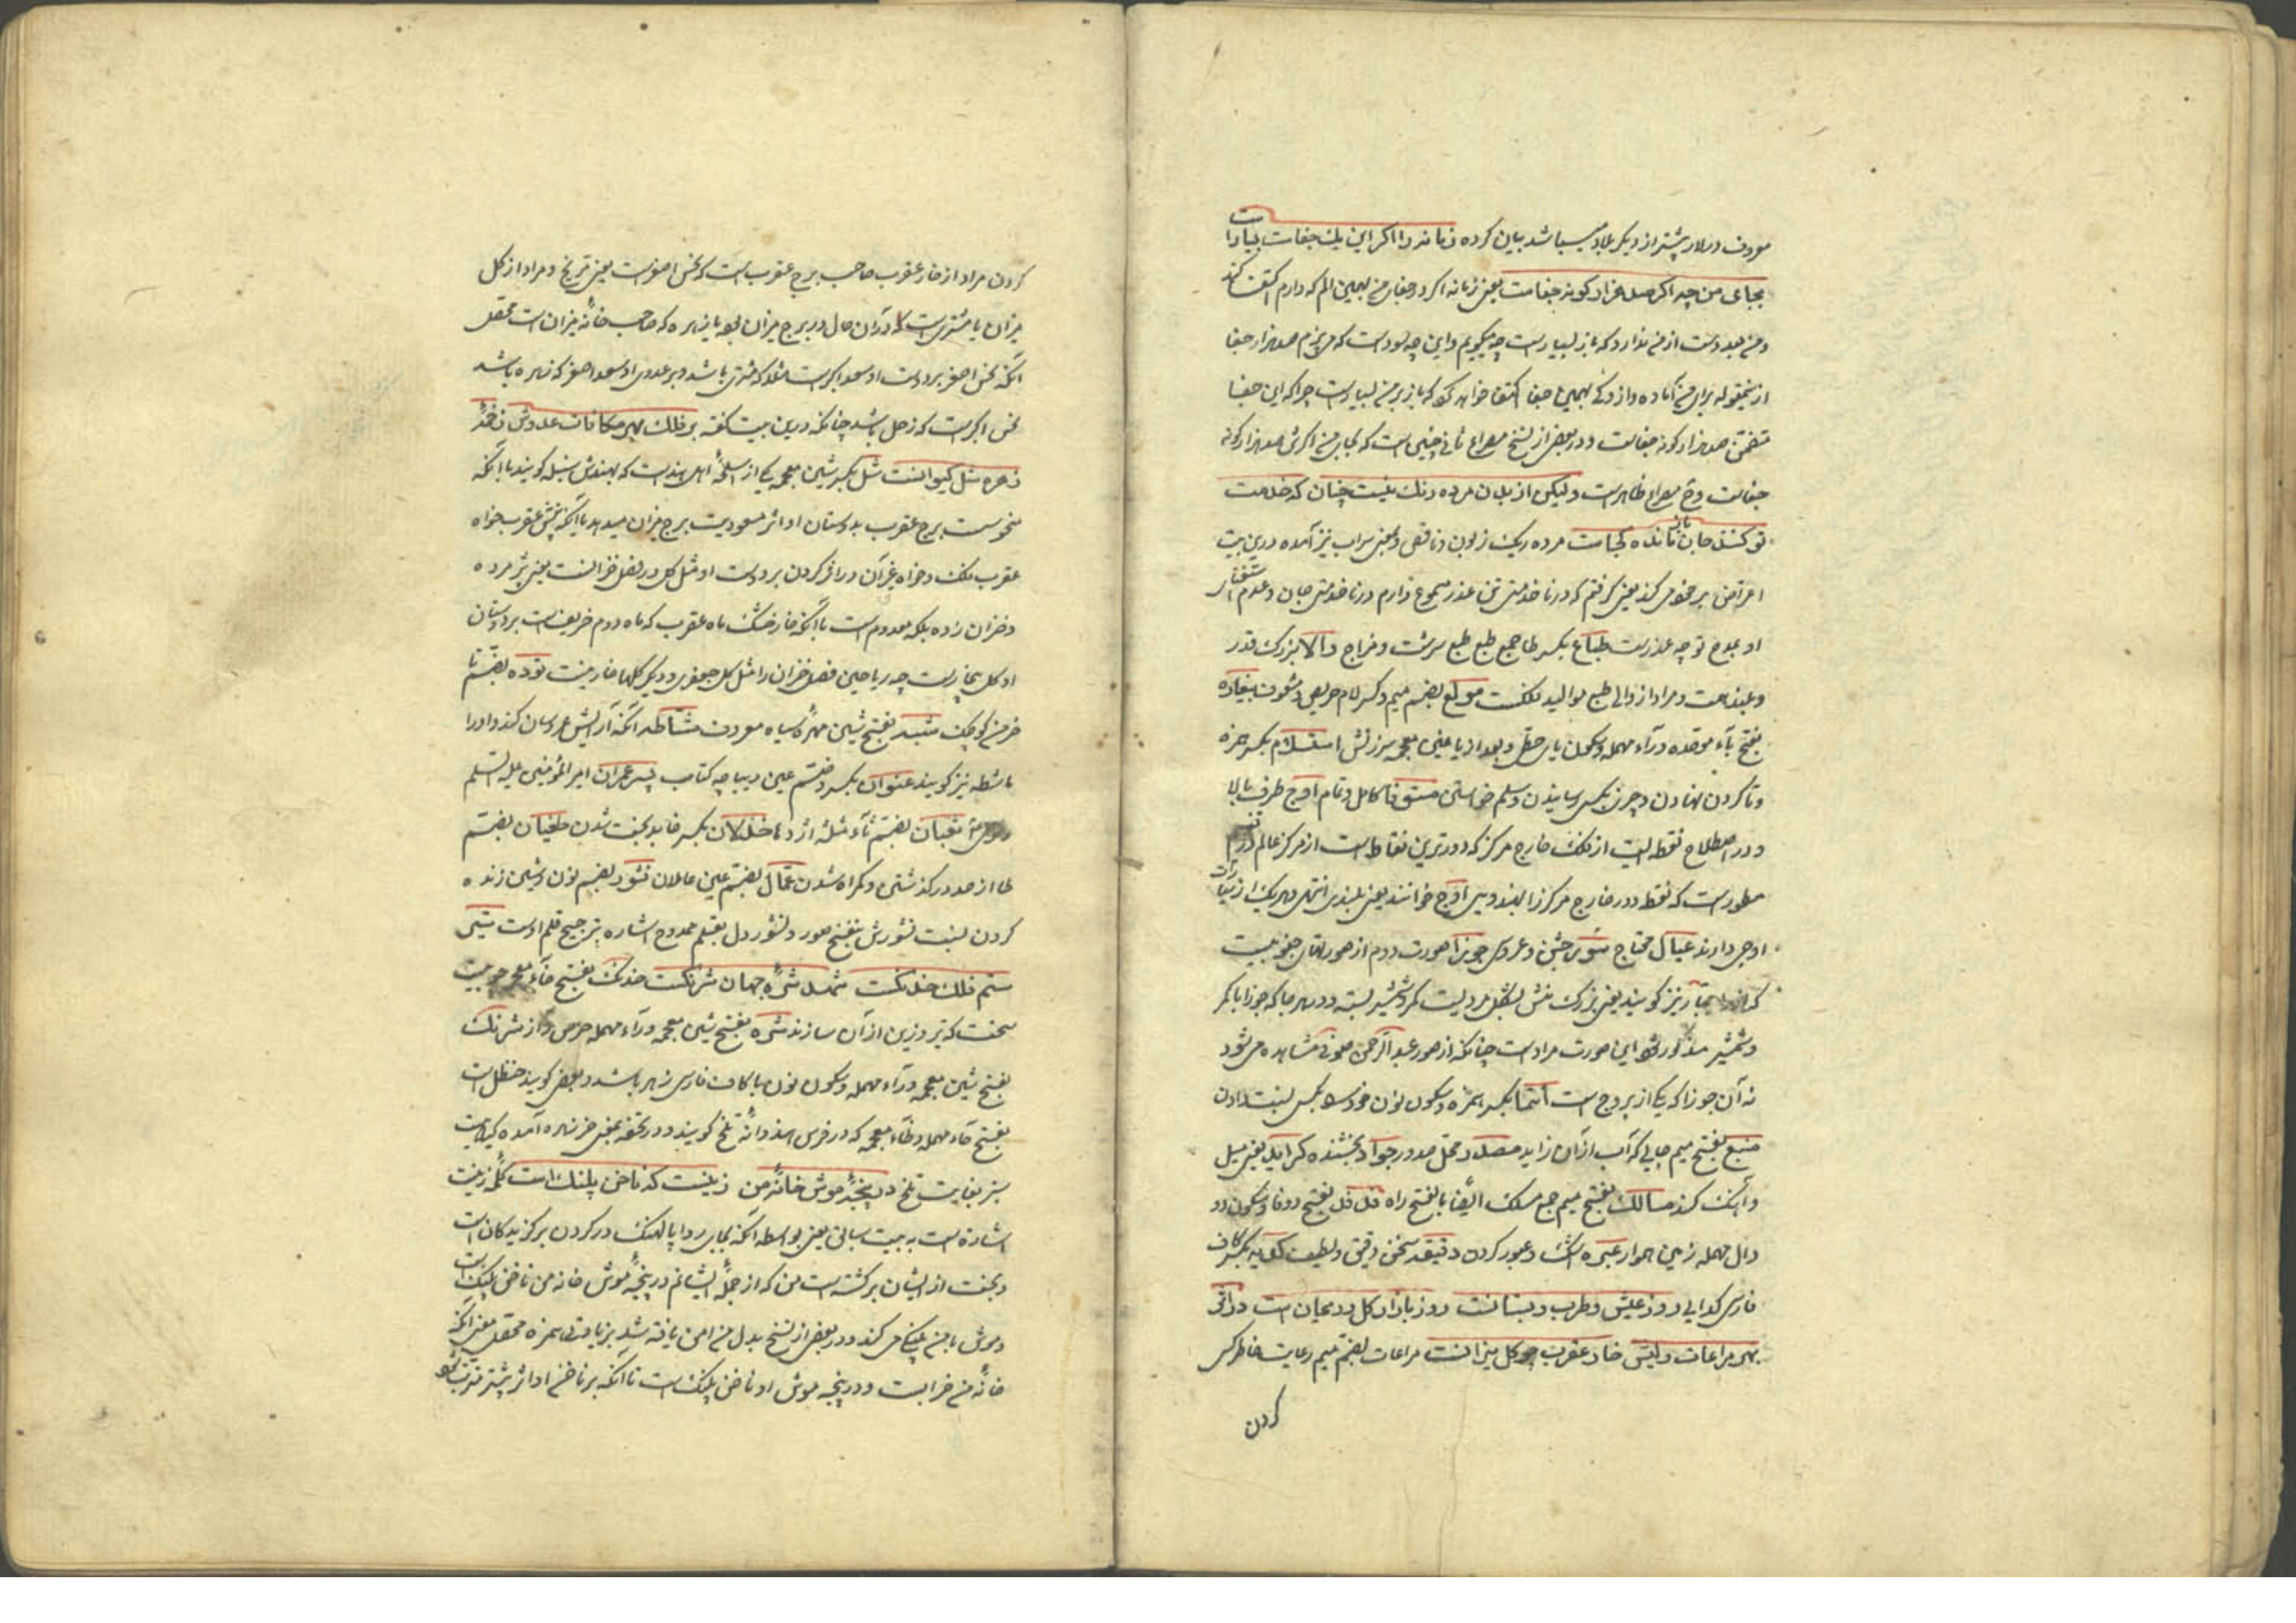 معروف در بلاد بیشتر از دیگر بلاد میباشد بیان کرده زمانه را اکر این یک جفاست بسیار است
بجای من چه اکر صد هزار کونه جفاست یعنی زمانه اکر در جفای من بهمین الم که دارم اکتفا کند
و من بعد دست از من ندارد که باز بسیار است چه میکویم و این چه سود است که می پزم صد هزار جفا
ازینمقوله برای من آماده دارد و کی بهمین جفا اکتفا خواهد کرد که باز بر من بسیار است چرا که این جفا
متضمن صد هزار کونه جفاست و در بعضی از نسخ مصراع ثانی چنین است که بجای من اکرش صد هزار کونه
جفاست و ح مصراع ظاهر است ولیکن از بدن مرده رنک نیست چنان که خدمت
تو کنند جان مانده کجاست مرده ریک زبون و ناقص و بمعنی میراث نیز آمده درین بیت
اعتراض بر خود می کند یعنی کرفتم که در ناخدمتی تن عذر مسموع دارم در ناخدمتی جان و عدم اشتغال
او بمدح تو چه عذر است طباع بکسر طا جمع طبع طبع سرشت و مزاج والا بزرک قدر
و بلند است و مراد از والی طبع موالید ملکست مولع بضم میم و کسر لام حریص و مشعوف بیغاره
بفتح باء موحده و راء مهمله و سکون یای حطی و بعد از یا غین معجمه سرزنش استلام بکسر همزه
و تا کردن نهادن و چیزی بکسی رسانیدن و سلم خواستن مستوفا کامل و تمام اوج طرف بالا
و در اصطلاح نقطه ایست از فلک خارج مرکز که دورترین نقاط است از مرکز عالم
مسطور است که نقطه دور خارج مرکز را بهندوی اوج خوانند یعنی بلندی انتهی و هر یک از سیارات
اوجی دارند عیال محتاج سور جشن و عروسی جوزا صورت دوم از صور آفاق جنوبیست
که آنرا جبار نیز کویند یعنی بزرک منش بشکل مردیست کمر و شمشیر بسته و در هر جا که جوزا با کمر
و شمشیر مذکور شود این صورت مراد است چنانکه از صور عبد الرحمن صوفی مشاهده می شود
نه آن جوزا که یکی از بروج است انتما بکسر همزه و سکون نون خود را بکسی نسبت دادن
منبع بفتح میم جایی که آب از آن زاید مصدر محل صدور جواد بخشنده کراید یعنی میل
و آهنک کند مسالک بفتح میم جمع مسلک ایضا بالفتح راه فدفد بفتح دو فا و سکون دو
دال مهمله زمین هموار عبره اشک و عبور کردن دقیقه سخن دقیق و لطیف کدیه بکسر کاف
فارسی کدایی روز عیش و طرب و بستانست روز بازار کل و ریحان است در افق
بهر مراعات ولیش خار عقرب چو کل میزانست مراعات بضم میم رعایت خاطر کسی
کردن
کردن مراد از خار عقرب صاحب برج عقرب است که نحس اصغر است یعنی مریخ و مراد از کل
میزان یا مشتری است که در آن حال در برج میزان بود یا زهره که صاحب خانه میزان است محصل
آنکه نحس اصغر بر دوست او سعد اکبر است مثلا که مشتری باشد و بر عدوی او سعد اصغر که زهره باشد
نحس اکبر است که زحل باشد چنانکه درین بیت کفته بر فلک بهر مکافات عدوش زخمه
زهره شل کیوانست شل بکسر شین معجمه یکی از اسلحه اهل هند است که بهندیش سیله کویند یا آنکه
نحوست برج عقرب بدوستان او اثر مسعودیت برج میزان میدهد یا آنکه نیش عقرب خواه
عقرب فلک و خواه غیر آن در اثر کردن بر دوست او مثل کل در فصل خزانست یعنی پژمرده
و خزان زده بلکه معدوم است یا آنکه خار خشک ماه عقرب که ماه دوم خریف است بر دوستان
او کل بخار است چه ریاحین فصل خزان را مثل کل جعفری و دیکر کلها خار نیست توده بضم تا
خرمن کوچک شبه بفتح شین مهره سیاه معروف مشاطه آنکه آرایش عروسان کند و او را
ماشطه نیز کویند عنوان بکسر و ضم عین دیباچه کتاب پسر عمران امیر المؤمنین علیه السلم
ثعبان بضم ثاء مثلثه اژدها خذلان بکسر خا بدبخت شدن طغیان بضم
طا از حد در کذشتن و کمراه شدن عمال بضم عین عاملان نشور بضم نون و شین زنده
کردن نسبت نشورش بنفخ صور و نشور دل بقلم ممدوح اشاره بترجیح قلم اوست متنی
ستم فلک خدنکست شهد شره جهان شرنکست خدنک بفتح خاء معجمه چوبیست
سخت که تیر و زین از آن سازند شره بفتح شین معجمه و راء مهمله حرص و آز شرنک
بفتح شین معجمه و راء مهمله و سکون نون با کاف فارسی زهر باشد و بعضی کویند حنظل است
بفتح حاء مهمله و ظاء معجمه که در فرس هندوانه تلخ کویند و در تحفه بمعنی خرزهره آمده کیاهیست
سبز بغایت تلخ در پنجه موش خانه من زینست که ناخن پلنک است کلمه زینت
اشاره است به بیت سابق یعنی بواسطه آنکه بجای ردا پالهنک در کردن برکزیدکان است
و بخت از ایشان برکشته است من که از جمله ایشانم در پنجه موش خانه من ناخن پلنک است
و موش با من پلنکی می کند و در بعضی از نسخ بدل من امن یافته شد بزیادتی همزه محصل معنی آنکه
خانه من خرابست و در پنجه موش او ناخن پلنک است تا آنکه بر ناخن او اثر بیشتر مترتب شود